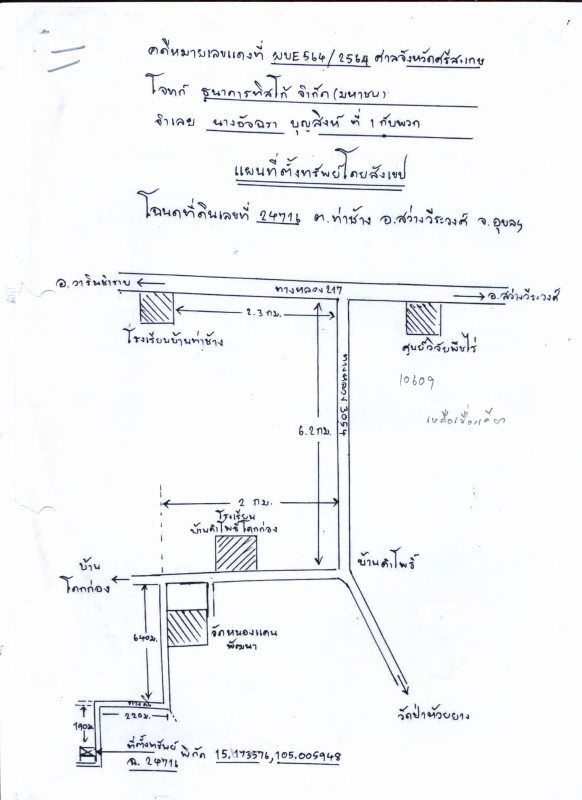 คดีหมายเลขแดงที่ ผบE564/2564 ศาลจังหวัดศรีสะเกษ
โจทก์ ธนาคารทิสโก้ จำกัด (มหาชน)
จำเลย นางอัจฉรา บุญสิงห์ ที่ 1 กับพวก
แผนที่ตั้งทรัพย์โดยสังเขป
โฉนดที่ดินเลขที่ 24716 ต.ท่าช้าง อ.สว่างวีระวงศ์ จ.อุบลฯ
อ.วารินชำราบ
ทางหลวง 217
อ.สว่างวีระวงศ์
2.3 กม.
โรงเรียนบ้านท่าช้าง
ศูนย์วิจัยพืชไร่
ทางหลวง 3054
10609
6.2 กม.
2 กม.
โรงเรียน
บ้านคำโพธิ์โคกก่อง
บ้าน
โคกก่อง
บ้านคำโพธิ์
640ม.
วัดหนองแคน
พัฒนา
วัดป่าห้วยยาง
220ม.
190ม.
ที่ตั้งทรัพย์
ฉ. 24716
พิกัด 15.173376,105.005948